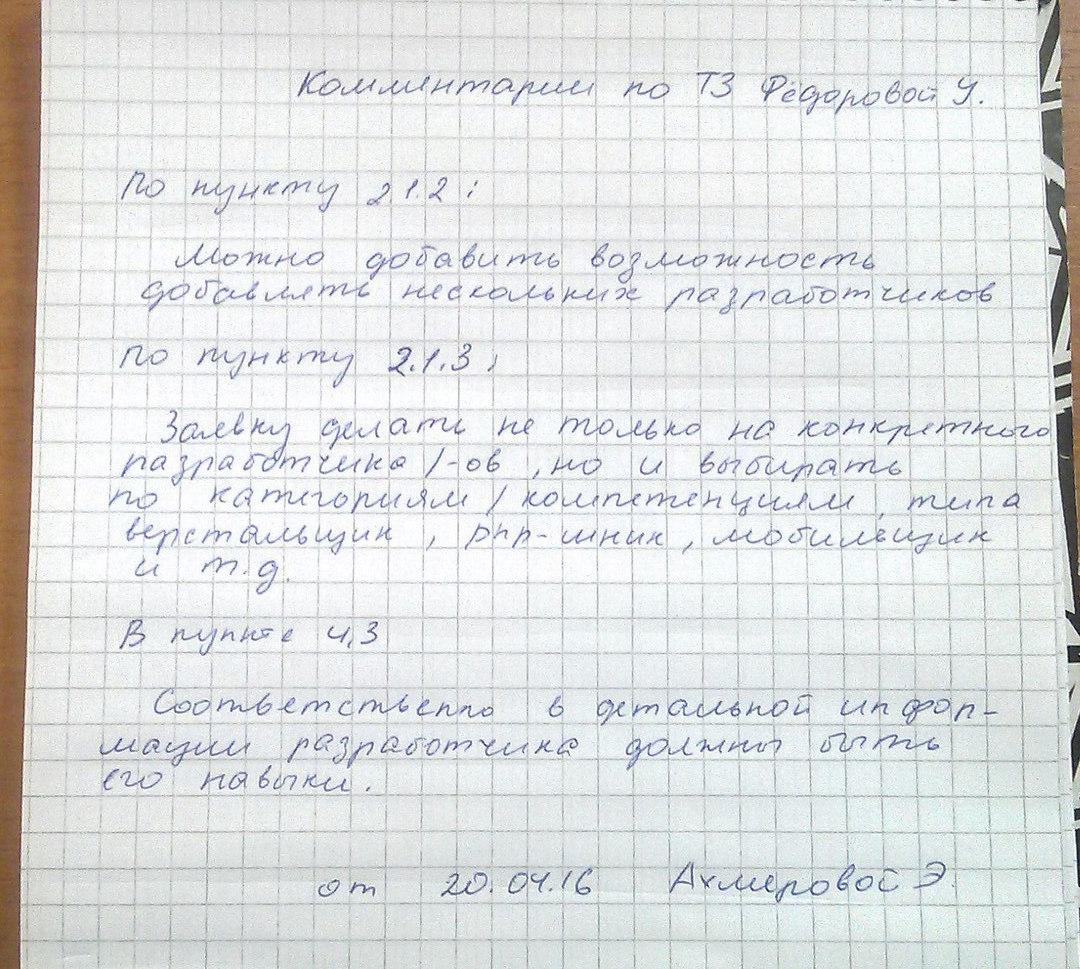 Комментарии по ТЗ Фёдоровой У.
По пункту 2 1.2:
Можно добавить возможность
добавлять нескольких разработчиков
По пункту 2.1.3:
Заявку делать не только на конкретного
разработчика /-ов, но и выбирать
по категориям / компетенциям, типа
верстальщик, php-шник, мобильщик
и т.д.
В пункте 4.3
Соответственно в детальной инфор-
мации разработчика должны быть
его навыки.
от 20.04.16 Ахмеровой Э.